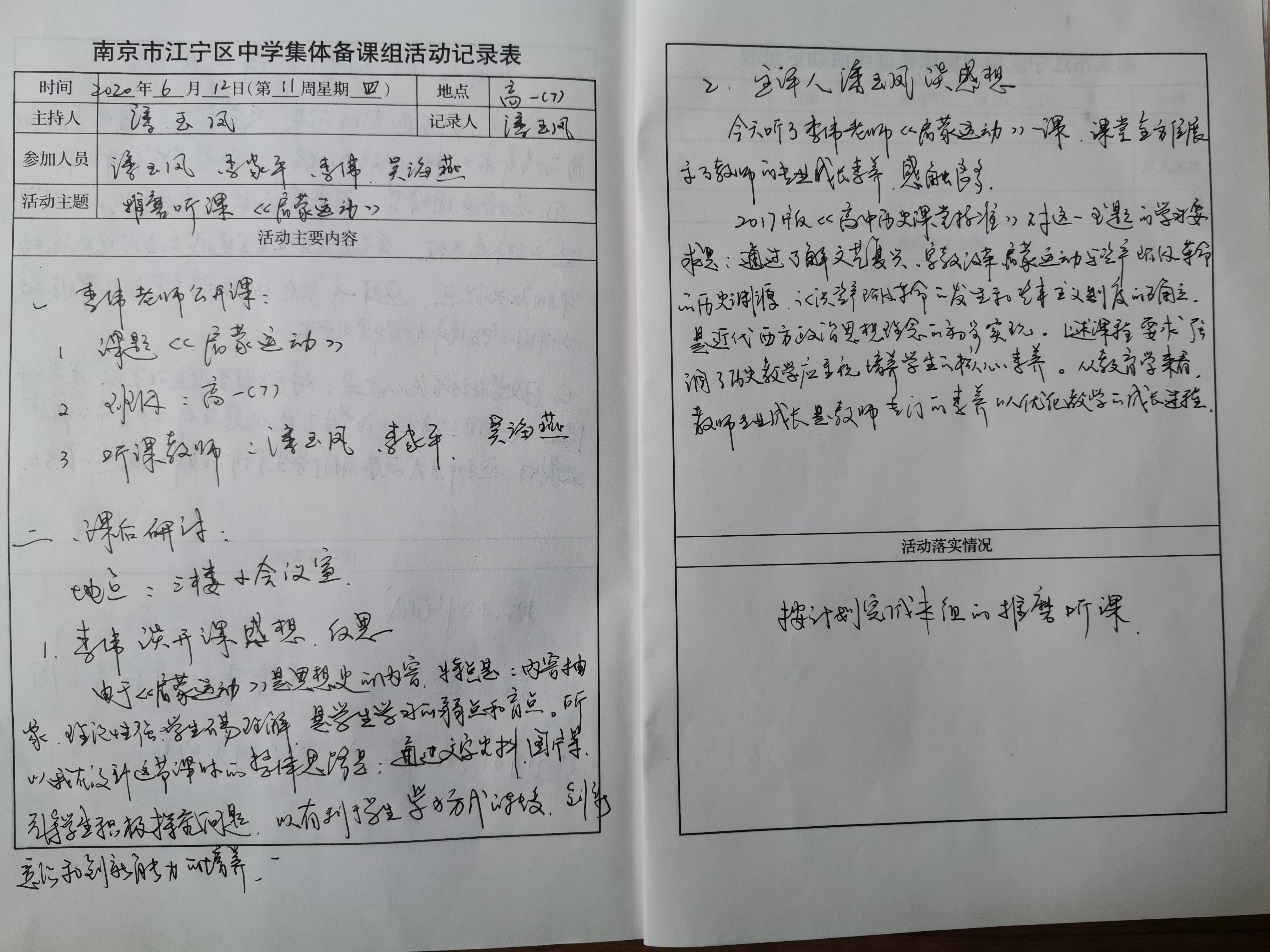 南京市江宁区中学集体备课组活动记录表
时间 2020年 6 月 12日(第 11 周星期 四 ) 地点 高一(7)
主持人 潘玉凤 记录人 潘玉凤
参加人员 潘玉凤 李家平 李伟 吴海燕
活动主题 推磨听课《启蒙运动》
活动主要内容
一 李伟老师公开课:
1 课题《启蒙运动》
2 班级:高一(7)
3 听课教师:潘玉凤 李家平. 吴海燕
二、课后研讨:
地点:三楼小会议室.
1. 李伟谈开课感想、反思
由于《启蒙运动》是思想史的内容、特点是:内容抽
象、理论性强、学生不易理解,是学生学习的弱点和盲点。所
以我在设计这节课时的整体思路是:通过文字史料、图片等、
引导学生积极探究问题、以有利于学生学习方式的转变、创新
意识和创新能力的培养、
2. 主评人潘玉凤谈感想
今天听了李伟老师《启蒙运动》一课、课堂全方位展
示了教师的专业成长素养,感触良多.
2017版《高中历史课堂标准》对这一主题的学习要
求是:通过了解文艺复兴、宗教改革、启蒙运动与资产阶级革命
的历史渊源,认识资产阶级革命的发生和资本主义制度的确立,
是近代西方政治思想理念的初步实现。上述课程要求强
调了历史教学应主抓培养学生的核心素养。从教育学来看,
教师专业成长是教师专门的素养以优化教学的成长进程.
活动落实情况
按计划完成本组的推磨听课.